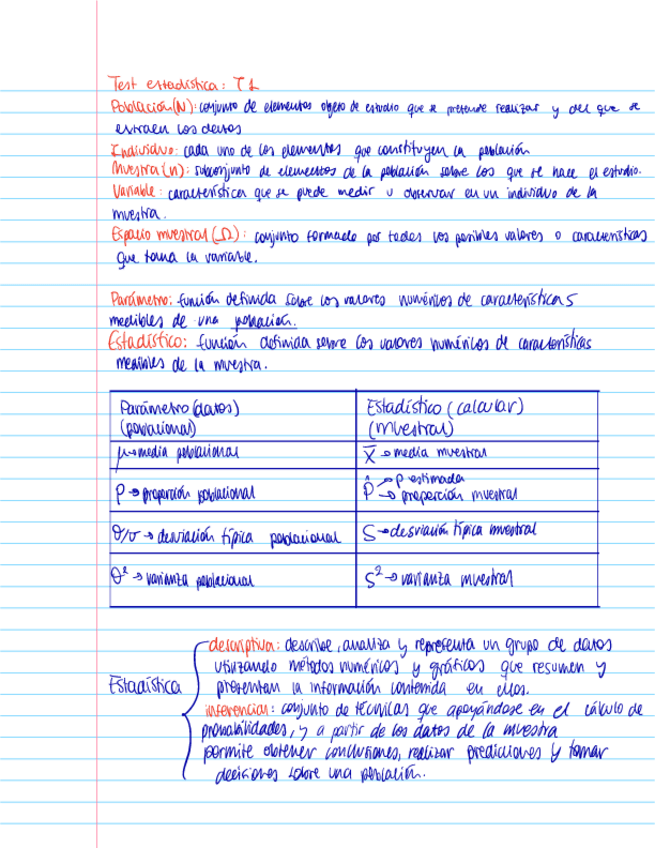 Test estadística: T1
Población(N): conjunto de elementos objeto de estudio que se pretende realizar y del que se
extraen los datos
Individuo: cada uno de los elementos que constituyen la población
Muestra(n): subconjunto de elementos de la población sobre los que se hace el estudio.
Variable: característica que se puede medir u observar en un individuo de la
muestra.
Espacio muestral (Ω): conjunto formado por todos los posibles valores o características
que toma la variable.
Parámetro: función definida sobre los valores numéricos de características
medibles de una población.
Estadístico: función definida sobre los valores numéricos de características
medibles de la muestra.
Parámetro (datos) Estadístico (calcular)
(poblacional) (muestral)
μ→media poblacional x̄→media muestral
P→proporción poblacional p̂→p estimada
→proporción muestral
θ/σ→desviación típica poblacional S→desviación típica muestral
θ²→varianza poblacional S²→varianza muestral
Estadística
descriptiva: describe, analiza y representa un grupo de datos
utilizando métodos numéricos y gráficos que resumen y
presentan la información contenida en ellos.
inferencial: conjunto de técnicas que apoyándose en el cálculo de
probabilidades, y a partir de los datos de la muestra
permite obtener conclusiones, realizar predicciones y tomar
decisiones sobre una población.